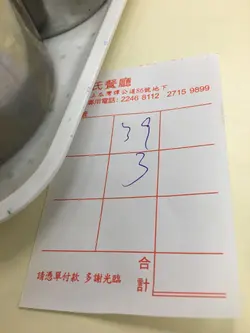 氏餐廳
譚公道86號地下
電話: 2246 8112   2715 9899
號
39
3
合
計
請憑單付款 多謝光臨